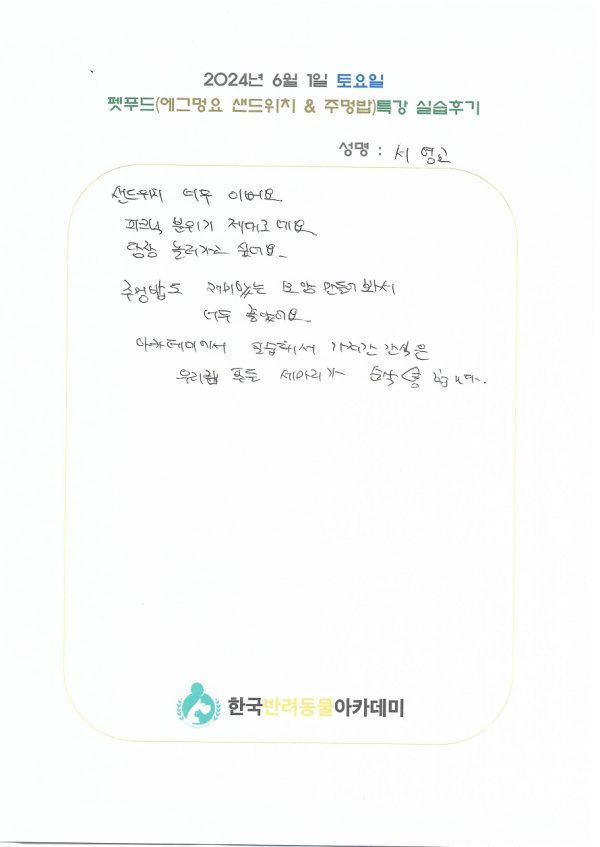 2024년 6월 1일 토요일
펫푸드(에그멍요 샌드위치 & 주멍밥)특강 실습후기
성명 : 서영
샌드위치 너무 이뻐요
피크닉 분위기 제대로네요
당장 놀러가고 싶어요
주멍밥도 재미있는 모양 만들어봐서
너무 좋았어요
아카데미에서 실습해서 가져간 간식은
우리집 푸들 세마리가 순삭 합니다.
한국반려동물아카데미